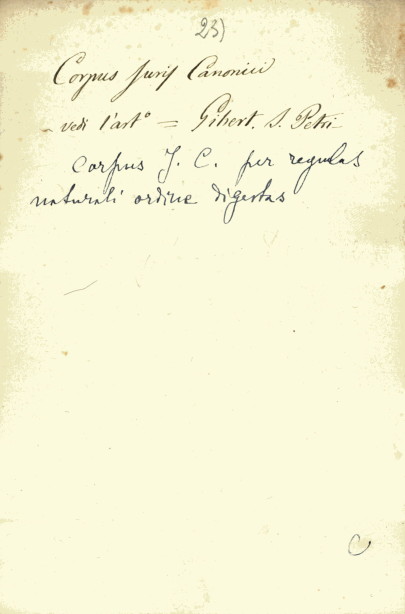 23)
Corpus Juris Canonici
- vedi l'art° = Gibert. J. Petri
corpus J. C. per regulas
naturali ordine digestas
C